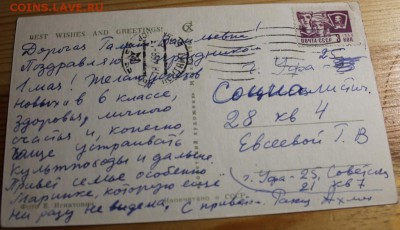 COINS.SS.RU
BEST WISHES AND GREETINGS!
Дорогая Галина
Поздравляю с праздником
1 мая! Желаю
новых в 6 классе,
здоровья, личного
счастья и, конечно
чаще устраивать
культпоходы и дальше.
Привет семье особенно
Маринке, которую еще
ни разу не видела. С приветом
ПОЧТА СССР
г. Уфа 25
Социалистич.
28 кв 4
Евсеевой Г. В
г. Уфа-25, Советская
21 кв 7